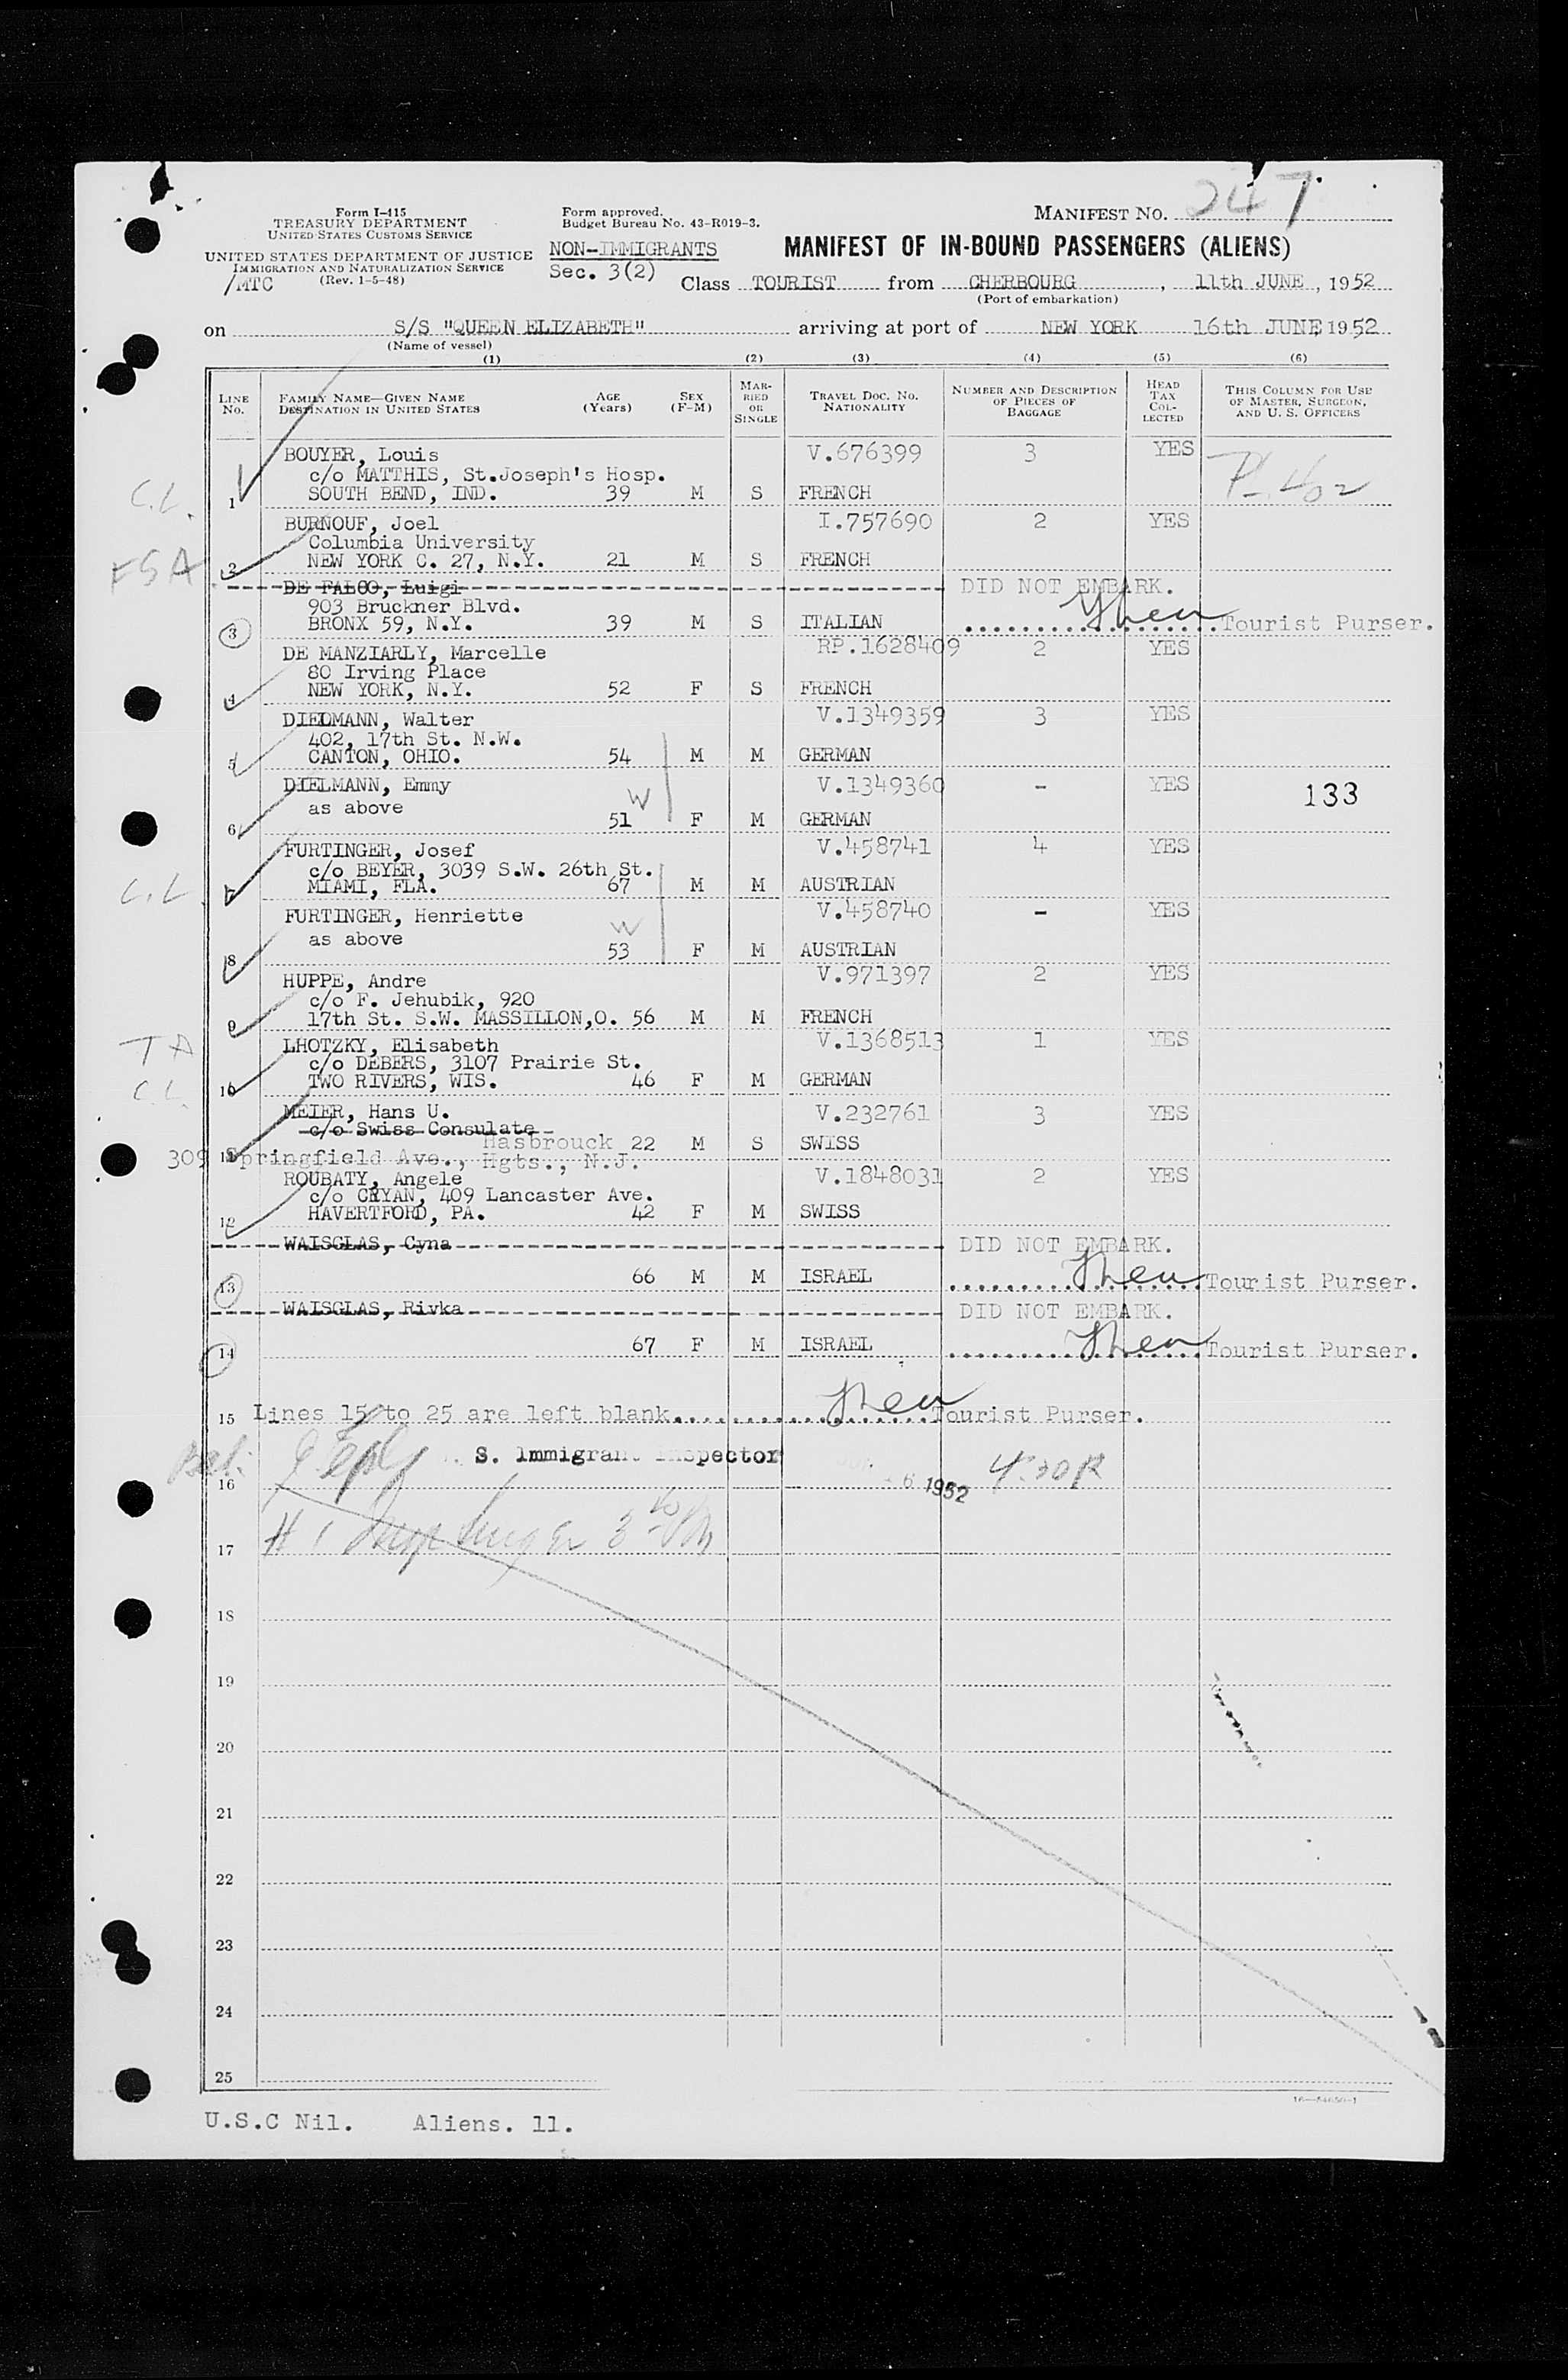 MANIFEST NO. 247
Form I-415
TREASURY DEPARTMENT
UNITED STATES CUSTOMS SERVICE
UNITED STATES DEPARTMENT OF JUSTICE
IMMIGRATION AND NATURALIZATION SERVICE
(Rev. 1-5-48)
/MTC
Form approved.
Budget Bureau No. 43-R019-3.
NON-IMMIGRANTS
Sec. 3(2)
MANIFEST OF IN-BOUND PASSENGERS (ALIENS)
Class TOURIST from CHERBOURG, 11th JUNE, 1952
(Port of embarkation)
on S/S "QUEEN ELIZABETH" arriving at port of NEW YORK 16th JUNE 1952
(Name of vessel)
(1) (2) (3) (4) (5) (6)
LINE NO. FAMILY NAME—GIVEN NAME DESTINATION IN UNITED STATES AGE (Years) SEX (F-M) MARRIED OR SINGLE TRAVEL DOC. NO. NATIONALITY NUMBER AND DESCRIPTION OF PIECES OF BAGGAGE HEAD TAX COLLECTED THIS COLUMN FOR USE OF MASTER, SURGEON, AND U. S. OFFICERS
BOUYER, Louis V.676399 3 YES
c/o MATTHIS, St.Joseph's Hosp.
C.L. 1 SOUTH BEND, IND. 39 M S FRENCH
BURNOUF, Joel I.757690 2 YES
Columbia University
FSA 2 NEW YORK C. 27, N.Y. 21 M S FRENCH
DE FALCO, Luigi DID NOT EMBARK.
903 Bruckner Blvd.
3 BRONX 59, N.Y. 39 M S ITALIAN Tourist Purser.
DE MANZIARLY, Marcelle RP.1628409 2 YES
80 Irving Place
4 NEW YORK, N.Y. 52 F S FRENCH
DIELMANN, Walter V.1349359 3 YES
402, 17th St. N.W.
5 CANTON, OHIO. 54 M M GERMAN
DIELMANN, Emmy V.1349360 - YES 133
as above W
6 51 F M GERMAN
FURTINGER, Josef V.458741 4 YES
c/o BEYER, 3039 S.W. 26th St.
C.L 7 MIAMI, FLA. 67 M M AUSTRIAN
FURTINGER, Henriette V.458740 - YES
as above W
8 53 F M AUSTRIAN
HUPPE, Andre V.971397 2 YES
c/o F. Jehubik, 920
9 17th St. S.W. MASSILLON,O. 56 M M FRENCH
TA LHOTZKY, Elisabeth V.1368513 1 YES
c/o DEBERS, 3107 Prairie St.
C.L. 10 TWO RIVERS, WIS. 46 F M GERMAN
MEIER, Hans U. V.232761 3 YES
c/o Swiss Consulate
Hasbrouck 22 M S SWISS
309 11 Springfield Ave., Hgts., N.J.
ROUBATY, Angele V.1848031 2 YES
c/o CRYAN, 409 Lancaster Ave.
12 HAVERTFORD, PA. 42 F M SWISS
WAISGLAS, Cyna DID NOT EMBARK.
13 66 M M ISRAEL Tourist Purser.
WAISGLAS, Rivka DID NOT EMBARK.
14 67 F M ISRAEL Tourist Purser.
15 Lines 15 to 25 are left blank. Tourist Purser.
S. Immigrant Inspector
16 6 1952 4:30
17
18
19
20
21
22
23
24
25
U.S.C Nil. Aliens. 11.